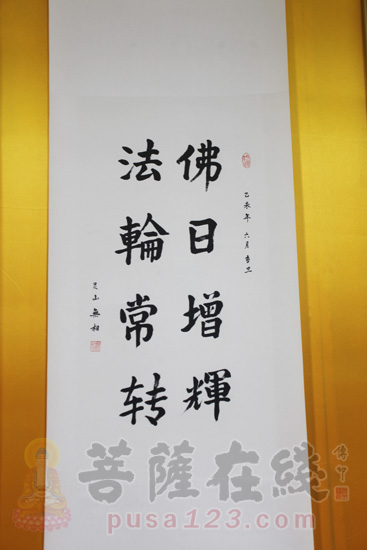 乙未年 六月
佛日增輝
法輪常转
灵山 無相
菩薩在线
pusa123.com